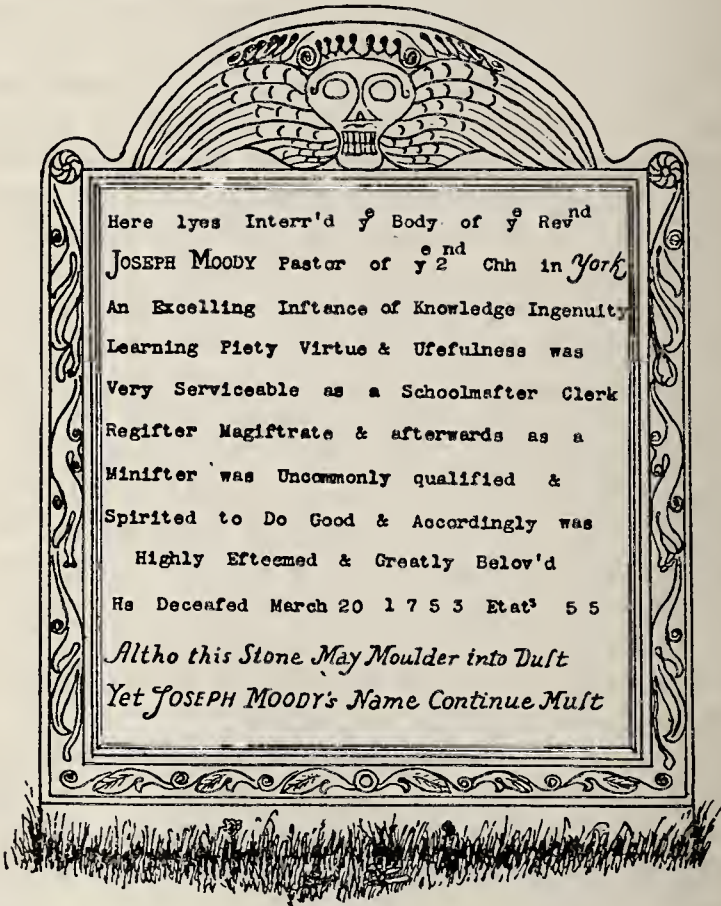 Here lyes Interr'd yᵉ Body of yᵉ Revⁿᵈ
JOSEPH MOODY Pastor of yᵉ 2ⁿᵈ Chh in York
An Excelling Inſtance of Knowledge Ingenuity
Learning Piety Virtue & Uſefulness was
Very Serviceable as a Schoolmaſter Clerk
Regiſter Magiſtrate & afterwards as a
Miniſter was Uncommonly qualified &
Spirited to Do Good & Accordingly was
Highly Eſteemed & Greatly Belov'd
He Deceaſed March 20 1753 Etatˢ 55
Altho this Stone May Moulder into Duſt
Yet JOSEPH MOODY's Name Continue Muſt